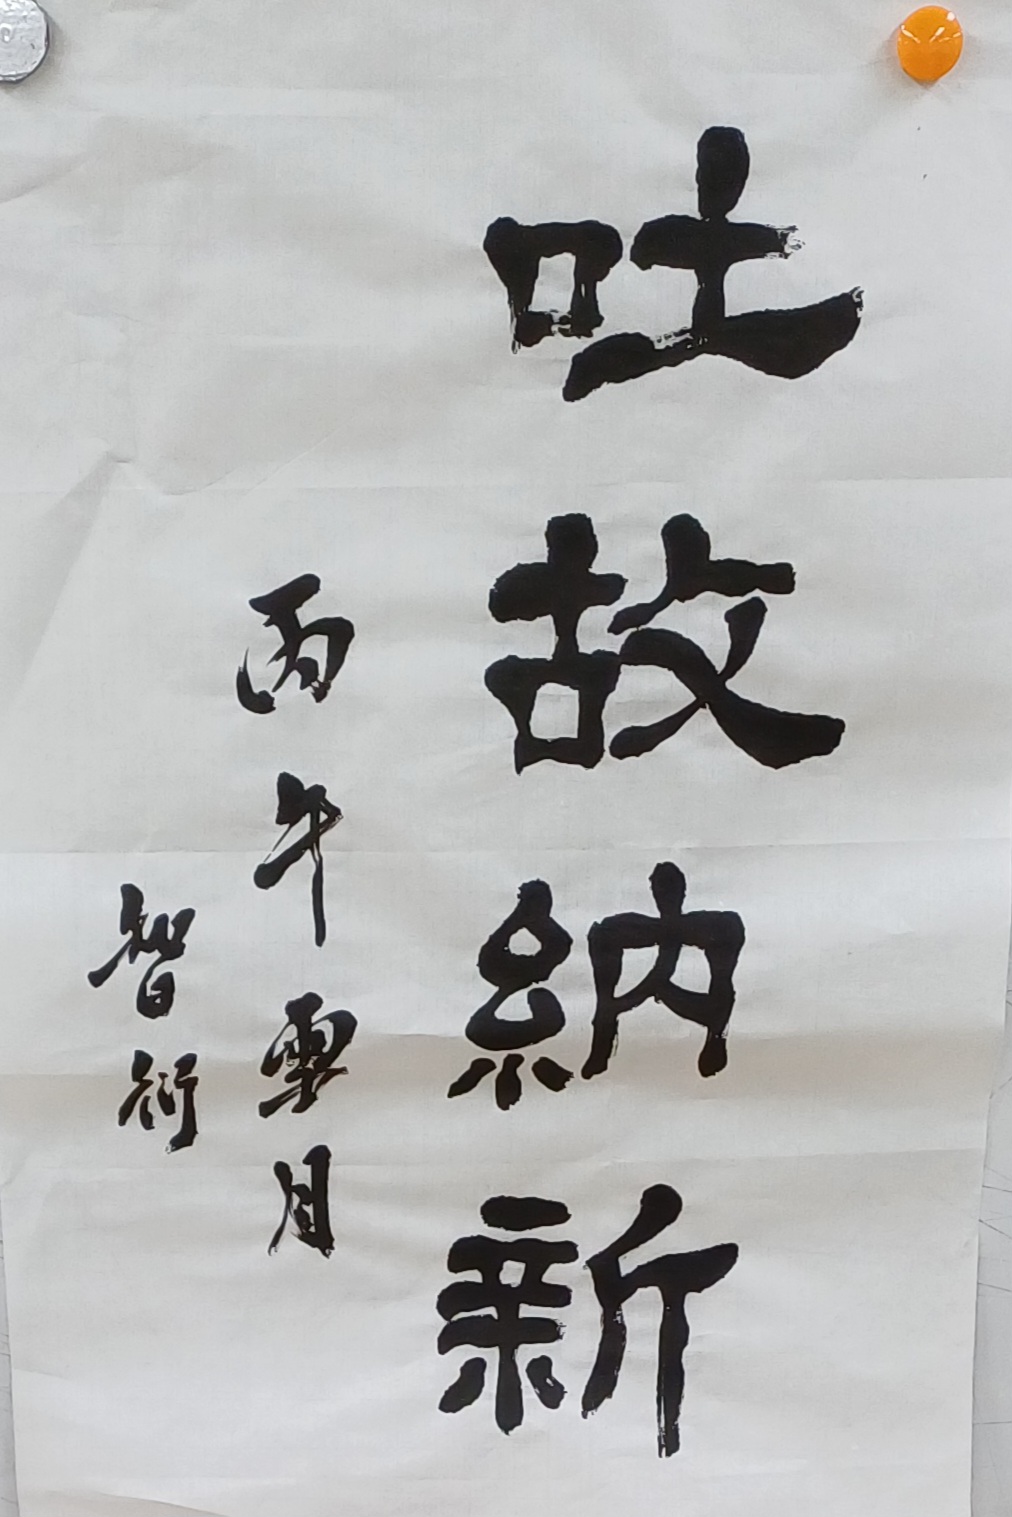 吐故納新
丙午雪月
智衍